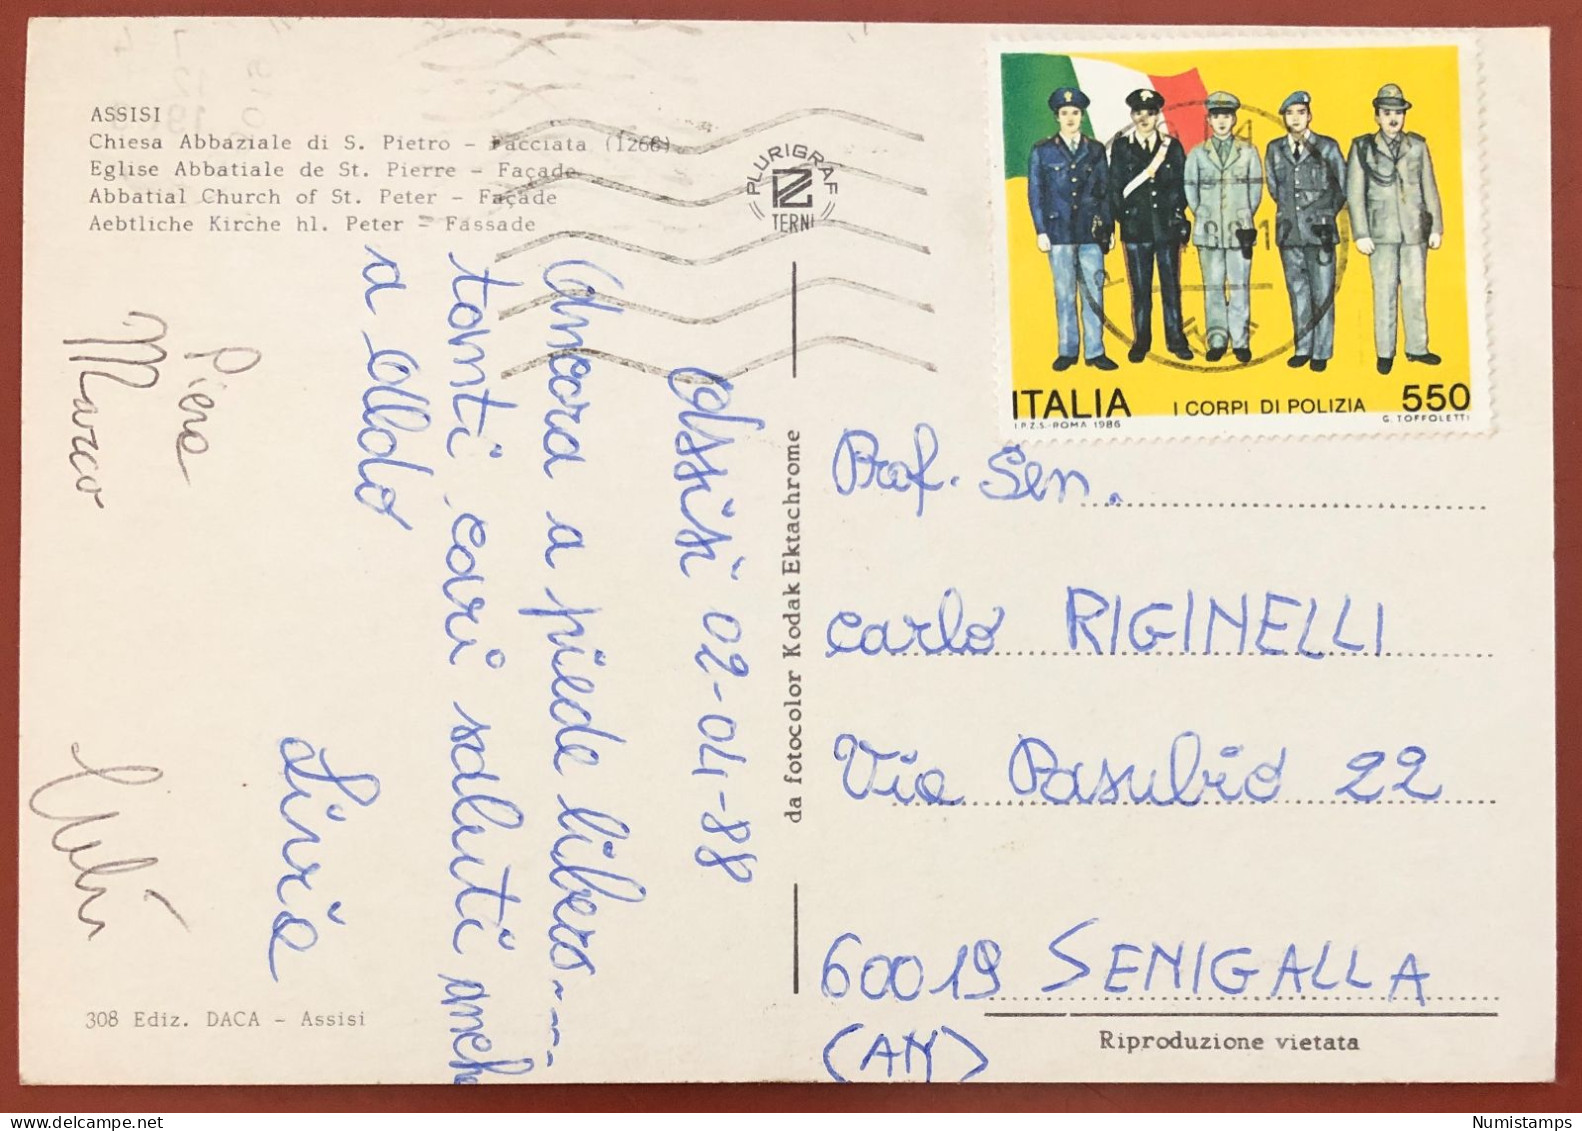 ASSISI
Chiesa Abbaziale di S. Pietro - Facciata (1268)
Eglise Abbatiale de St. Pierre - Façade
Abbatial Church of St. Peter - Façade
Aebtliche Kirche hl. Peter - Fassade
PLURIGRAF
TERNI
ITALIA I CORPI DI POLIZIA 550
I.P.Z.S.-ROMA 1986 G. TOFFOLETTI
Assisi 02-04-88
Ancora a piede libero----
tanti cari saluti anche
a Aldo
Livia
Piera
Marco
da fotocolor Kodak Ektachrome
Prof. Sen.
Carlo RIGINELLI
Via Pasubio 22
60019 SENIGALLIA
(AN)
308 Ediz. DACA - Assisi
Riproduzione vietata
Numistamps